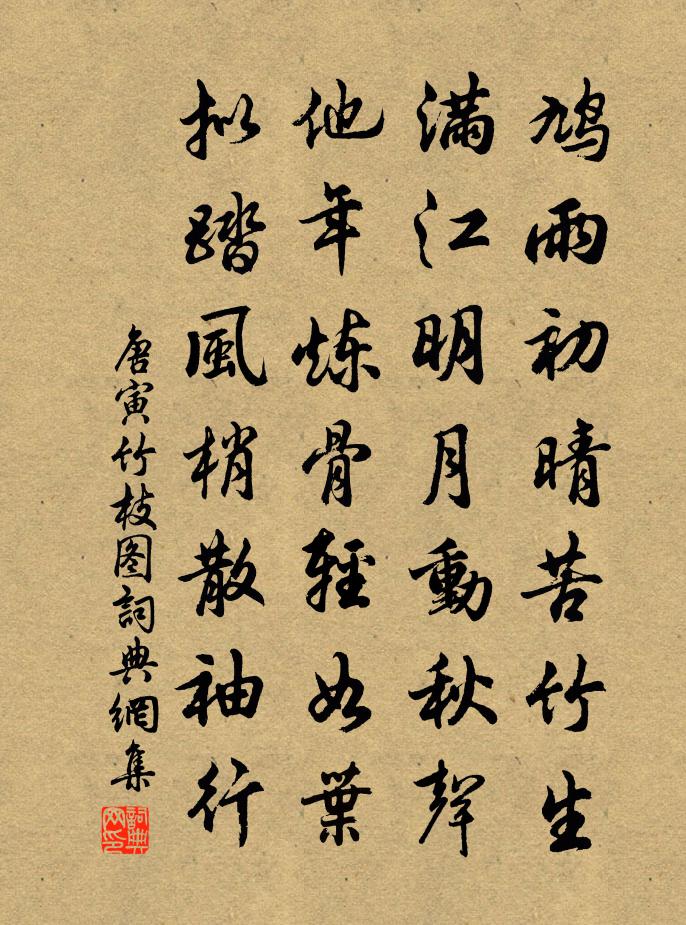 鸠雨初晴苦竹生
满江明月動秋聲
他年炼骨輕如葉
拟踏風梢散袖行
唐寅竹枝图詞典網集
詞典网印